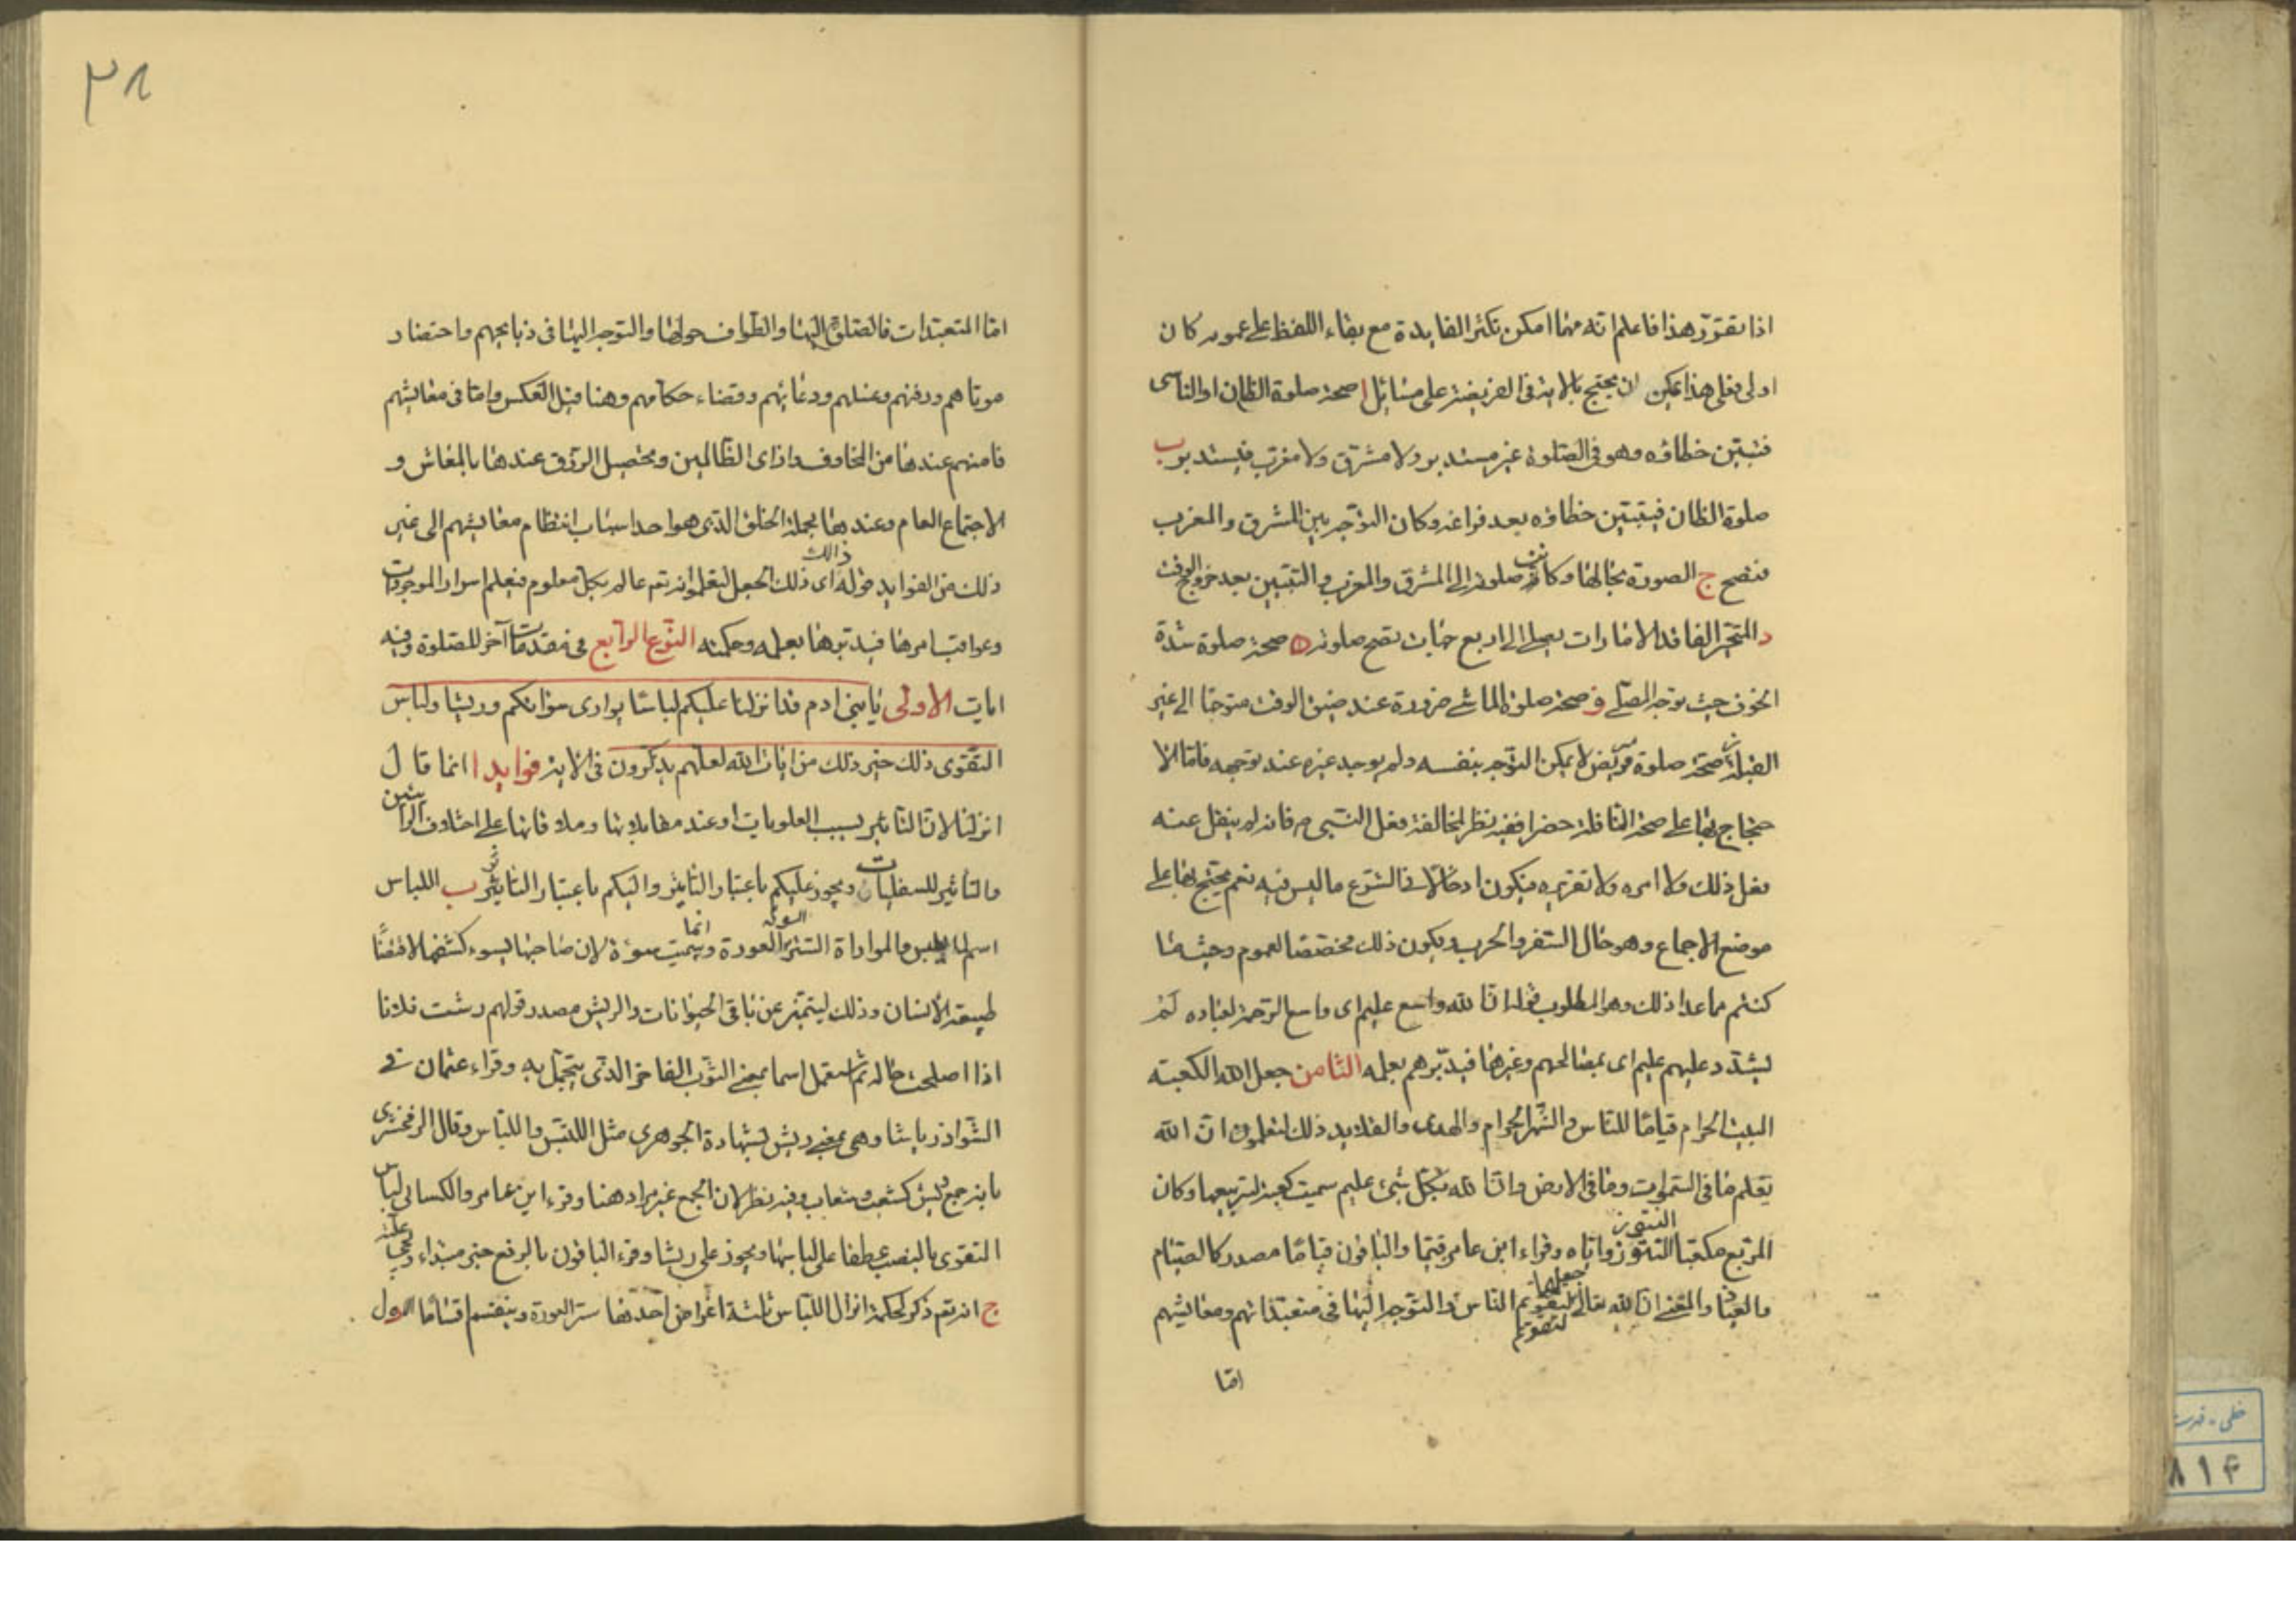 اذا تقرّر هذا فاعلم انه مهما امكن تكثر الفايدة مع بقاء اللفظ على عمومه كان
اولى فعلى هذا يمكن ان يحتج بالاية فى الفريضة على مسائل ا صحة صلوة الظان او الناسى
فتبيّن خطاؤه وهو فى الصلوة غير مستدبر ولا مشرق ولا مغرب فيستدير ب
صلوة الظان فيتبيّن خطاؤه بعد فراغه وكان التوجه بين المشرق والمغرب
فتصح ج الصورة بحالها وكانت صلوته الى المشرق والمغرب والتبيّن بعد خروج الوقت
د المتحيّر الفاقد الامارات يصلى الى اربع جهات تصح صلوته ه صحة صلوة شدة
الخوف حيث توجه المصلى و صحة صلوة الماشى ضرورة عند ضيق الوقت متوجها الى غير
القبلة ز صحة صلوة مريض لا يمكن التوجه بنفسه ولم يوجد غيره عند توجهه فامّا الا
حتجاج بها على صحة النافلة حضرا ففيه نظر لمخالفة فعل النبى ص فانه لم ينقل عنه
فعل ذلك ولا امره ولا تقريره فيكون ادخالا فى الشرع ما ليس فيه نعم يحتج بها على
موضع الاجماع وهو حال السفر والحرب ويكون ذلك مخصصا لعموم وحيث ما
كنتم بما عدا ذلك وهو المطلوب قوله انّ الله واسع عليم اى واسع الرحمة لعباده لم
يشدد عليهم عليم اى بمصالحهم وغيرها فيدبّرهم بعلمه الثامن جعل الله الكعبته
البيت الحرام قياما للناس والشهر الحرام والهدى والقلايد ذلك لتعلموا انّ الله
يعلم ما فى السموات وما فى الارض وانّ الله بكلّ شىء عليم سميت كعبة لتربيعها وكان
المربّع مكعّبا للنتوّ زواياه وقراء ابن عامر قيما والباقون قياما مصدر كالصيام
النتوّ
والعياذ والمعنى انّ الله تعالى جعلها ليقوم الناس والتوجه اليها فى متعبّداتهم ومعايشهم
لتقويم
امّا
٣٨
امّا المتعبّدات فالصلوة اليها والطواف حولها والتوجه اليها فى ذبايحهم واحتضار
موتاهم ودفنهم وغسلهم ودعائهم وقضاء حكامهم وهنا قيل العكس وامّا فى معايشهم
فامنهم عندها من المخاوف واذاى الظالمين وتحصيل الرزق عندها بالمعاش و
الاجتماع العام وعندها بجملة الخلق الذى هو احد اسباب انتظام معايشهم الى غير
ذلك من الفوايد قوله ذالك اى ذلك الجعل لتعلموا انه تع عالم بكلّ معلوم فيعلم اسرار الموجودات
وعواقب امرها فيدبّرها بعلمه وحكمته النوع الرابع فى مقدمات آخر للصلوة وفيه
ايات الاولى يا بنى ادم قد انزلنا عليكم لباسا يوارى سوآتكم وريشا ولباس
التقوى ذلك خير ذلك من ايات الله لعلهم يذكرون فى الاية فوايد ا انما قال
انزلنا لانّ التاثير بسبب العلويات او عند مقابلاتها وملاقاتها على اختلاف الرايين
والتاثير للسفليات ويجوز عليكم باعتبار التاثير واليكم باعتبار التاثّر ب اللباس
اسم لما يلبس والمواراة الستر السوءة العورة وانما سميت سوءة لان صاحبها يسوء كشفها لاقتضاء
طبيعة الانسان وذلك ليتميّز عن باقى الحيوانات والريش مصدر قولهم رشت فلانا
اذا اصلحت حاله ثم استعمل اسما بمعنى الثوب الفاخر الذى يتجمّل به وقراء عثمان فى
الشواذ رياشا وهى بمعنى ريش بشهادة الجوهرى مثل اللبس واللباس وقال الزمخشرى
بانه جمع ريش كشعب وشعاب وفيه نظر لان الجمع غير مراد هنا وقرء ابن عامر والكسائى لباس
التقوى بالنصب عطفا على لباسا ويجوز على ريشا وقرء الباقون بالرفع خبر مبتداء
ج انه تع ذكر لحكمة انزال اللباس ثلثة اغراض احدها ستر العورة وينقسم اقساما الاول
خطى . فهرست
٨١۴